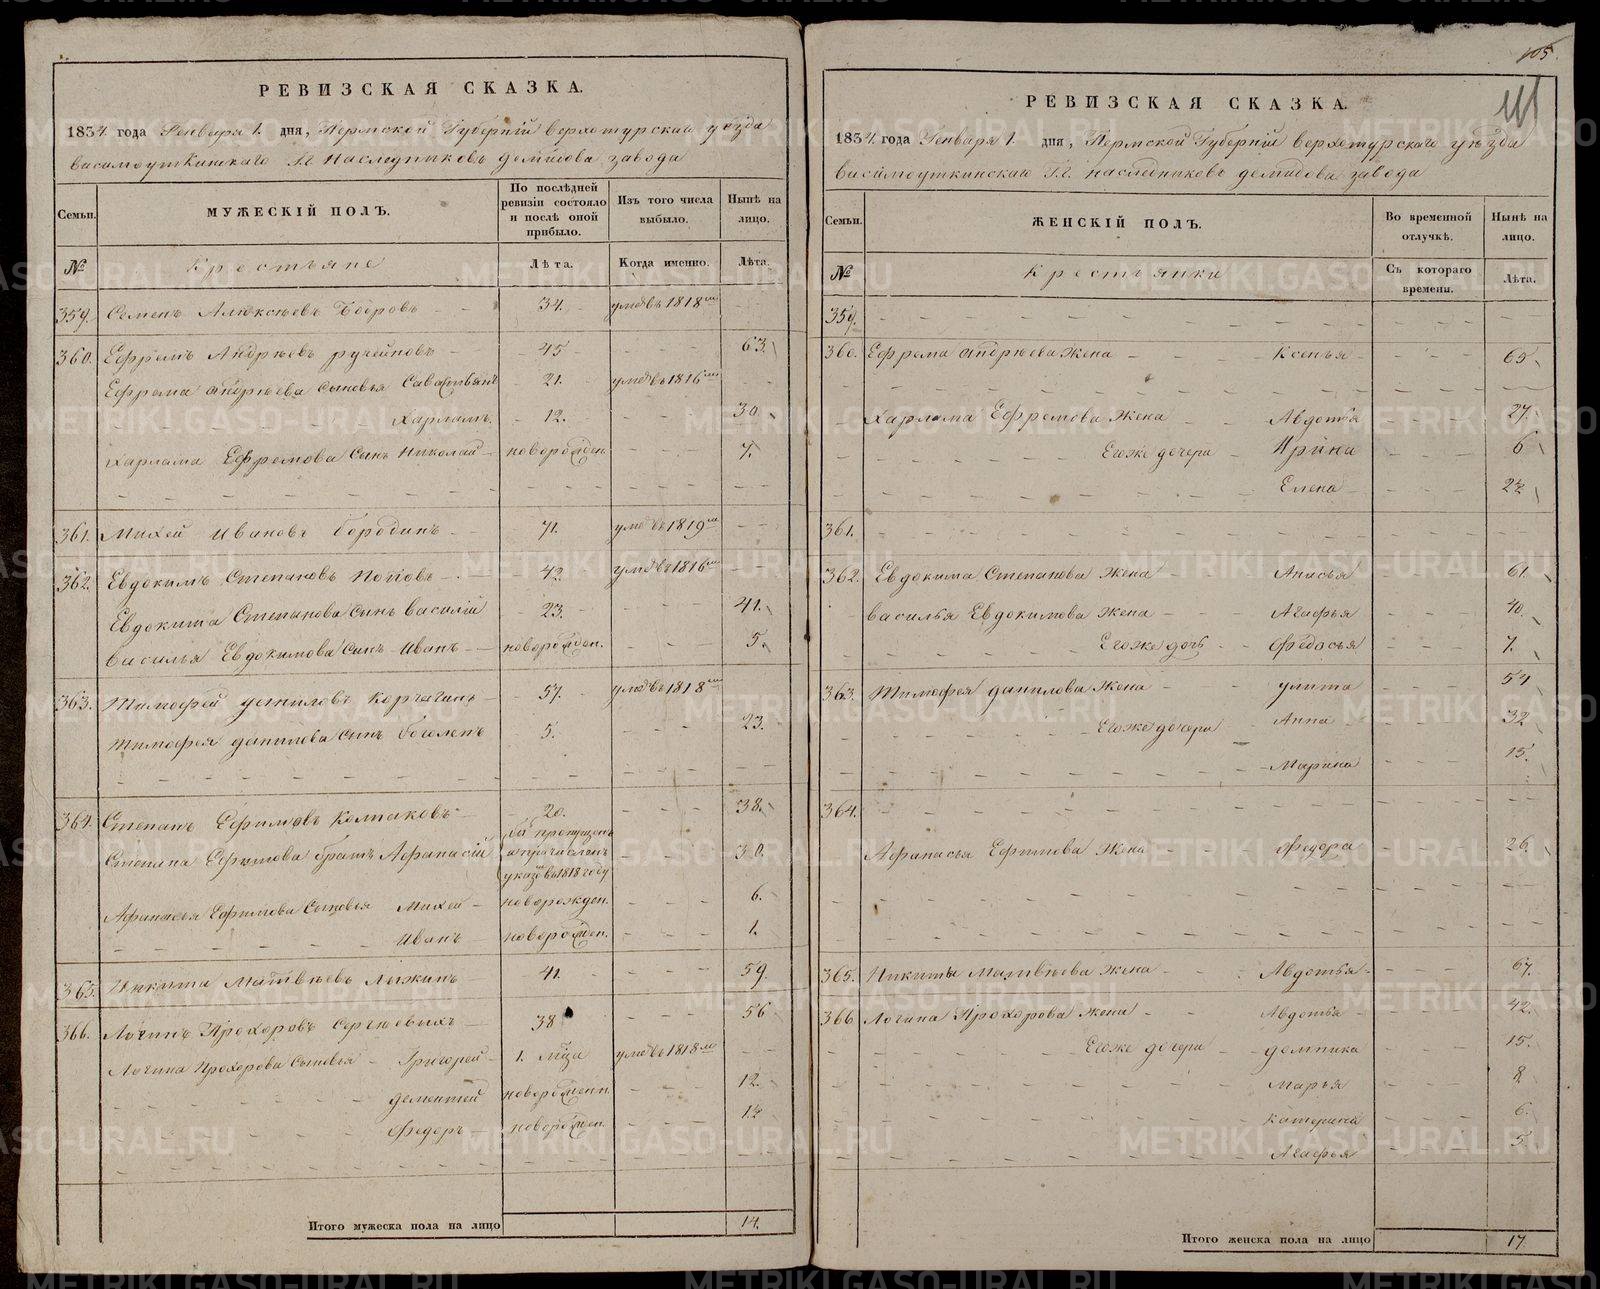 РЕВИЗСКАЯ СКАЗКА.
1834 года Генваря 1. дня, Пермской Губернїи верхотурскаго уѣзда
висимоуткинскаго Г.Г. наследниковъ демидова завода
Семьи.
МУЖЕСКІЙ ПОЛЪ.
По послѣдней ревизіи состояло и послѣ оной прибыло.
Изъ того числа выбыло.
Нынѣ на лицо.
№
Крестьяне
Лѣта.
Когда именно.
Лѣта.
359. Семенъ Алексѣевъ Бобровъ 34. умре въ 1818м
360. Ефремъ Андрѣевъ ручейновъ 45 63.
Ефрема андрѣева сыновья Саватѣянъ 21. умре въ 1816м
Харламъ. 12. 30.
Харлама Ефремова сынъ Николай новорожден. 7.
361. Михей Ивановъ бородинъ 71. умре въ 1819м
362. Евдокимъ Степановъ Поповъ 42. умре въ 1816м
Евдокима Степанова сынъ Василїй 23. 41.
Василья Евдокимова сынъ Иванъ новорожден. 5.
363. Тимофей даниловъ Корчагинъ 57. умре въ 1818м
Тимофея данилова сынъ боголепъ 5. 23.
364. Степанъ Ефимовъ Колмаковъ 20. 38.
Степана Ефимова братъ Афанасїй пропущенъ
30.
указ. въ 1818 году
Афанасья Ефимова сыновья Михей новорожден. 6.
Иванъ новорожден. 1.
365. Никита Матвѣевъ Лыжинъ 41. 59.
366. Логинъ Прохоровъ Сергѣевыхъ 38 56
Логина Прохорова сыновья Григорей 1. мца умре въ 1818м
дементей новорожденн. 12.
Федоръ новорожден. 14
Итого мужеска пола на лицо 14.
105.
РЕВИЗСКАЯ СКАЗКА.
1834. года Генваря 1. дня, Пермской Губернїи верхотурскаго уѣзда
висимоуткинскаго Г.Г. наследниковъ демидова завода
Семьи.
ЖЕНСКІЙ ПОЛЪ.
Во временной отлучкѣ.
Нынѣ на лицо.
№
Крестьянки
Съ котораго времени.
Лѣта.
359.
360. Ефрема андрѣева жена Ксенья 65
Харлама Ефремова жена Авдотья 27.
Егоже дочери Ирина 6
Елена
361.
362. Евдокима Степанова жена Анисья 61.
Василья Евдокимова жена Агафья 40.
Егоже дочь Федосья 7.
363. Тимофея данилова жена улита 54
Егоже дочери Анна 32
Марина 15.
364.
Афанасья Ефимова жена Федора 26.
365. Никиты Матвѣева жена Авдотья 67.
366 Логина Прохорова жена Авдотья 42.
Егоже дочери домника 15.
Марья 8
катерина 6.
Агафья 5
Итого женска пола на лицо 17.
METRIKI.GASO-URAL.RU